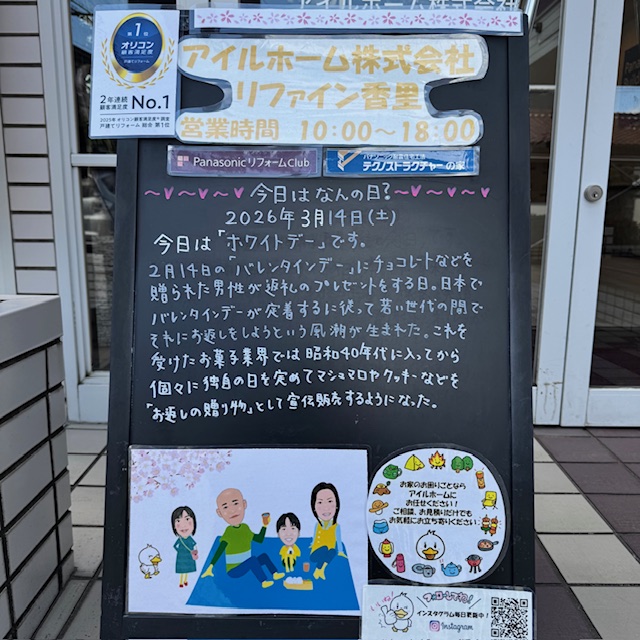 アイルホーム株式会社
第1位
オリコン
顧客満足度
戸建てリフォーム
2年連続
顧客満足度
No.1
2025年 オリコン顧客満足度®調査
戸建てリフォーム 総合 第1位
アイルホーム株式会社
リファイン香里
営業時間 10:00～18:00
Panasonic リフォーム Club
パナソニック耐震住宅工法
テクノストラクチャーの家
～♥～♥～♥ 今日はなんの日? ～♥～♥～♥
2026年3月14日(土)
今日は「ホワイトデー」です。
2月14日の「バレンタインデー」にチョコレートなどを
贈られた男性が返礼のプレゼントをする日。日本で
バレンタインデーが定着するに従って若い世代の間で
それにお返しをしようという風潮が生まれた。これを
受けたお菓子業界では昭和40年代に入ってから
個々に独自の日を定めてマシュマロやクッキーなどを
「お返しの贈り物」として宣伝販売するようになった。
お家のお困りごとなら
アイルホームに
お任せください!
ご相談、お見積りだけでも
お気軽にお立ち寄りください
フォローしてね!
インスタグラム毎日更新中!
Instagram